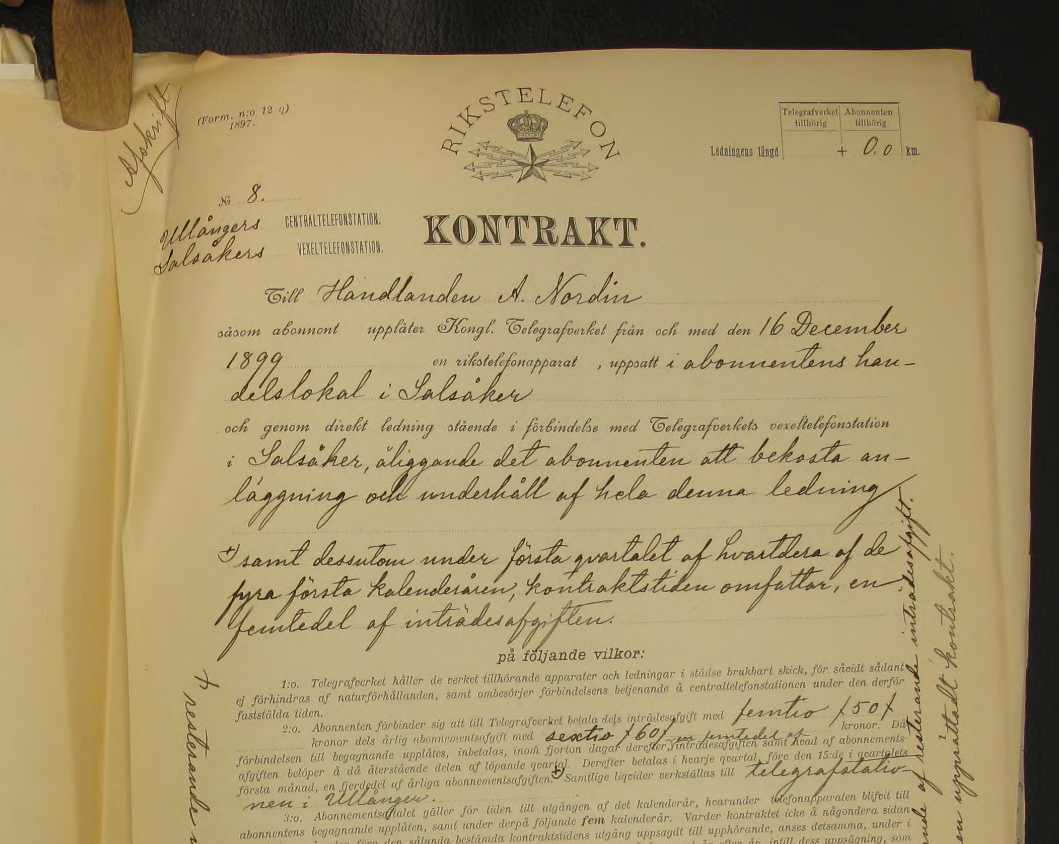 Afskrift
(Form. n:o 12 q)
1897.
RIKSTELEFON
Telegrafverket tillhörig
Abonnenten tillhörig
Ledningens längd + 0.0 km.
No 8.
Ullångers CENTRALTELEFONSTATION.
Salsåkers VEXELTELEFONSTATION.
KONTRAKT.
Till Handlanden A. Nordin
såsom abonnent upplåter Kongl. Telegrafverket från och med den 16 December
1899 en rikstelefonapparat , uppsatt i abonnentens han-
delslokal i Salsåker
och genom direkt ledning stående i förbindelse med Telegrafverkets vexeltelefonstation
i Salsåker, åliggande det abonnenten att bekosta an-
läggning och underhåll af hela denna ledning
+) samt dessutom under första qvartalet af hvartdera af de
fyra första kalenderåren, kontraktstiden omfattar, en
femtedel af inträdesafgiften.
på följande vilkor:
1:o. Telegrafverket håller de verket tillhörande apparater och ledningar i städse brukbart skick, för såvidt sådant
ej förhindras af naturförhållanden, samt ombesörjer förbindelsens betjenande å centraltelefonstationen under den derför
fastställda tiden.
2:o. Abonnenten förbinder sig att till Telegrafverket betala dels inträdesafgift med femtio /50/
kronor dels årlig abonnementsafgift med sextio /60/ kronor. Då
en femtedel af
förbindelsen till begagnande upplåtes, inbetalas, inom fjorton dagar derefter, inträdesafgiften samt hvad af abonnements-
afgiften belöper å då återstående delen af löpande qvartal. Derefter betalas i hvarje qvartal, före den 15:de i qvartalets
första månad, en fjerdedel af årliga abonnementsafgiften. +) Samtlige liqvider verkställas till telegrafstatio-
nen i Ullånger.
3:o. Abonnementsaftalet gäller för tiden till utgången af det kalenderår, hvarunder telefonapparaten blifvit till
abonnentens begagnande upplåten, samt under derpå följande fem kalenderår. Varder kontraktet icke å någondera sidan
före den sålunda bestämda kontraktstidens utgång uppsagdt till upphörande, anses detsamma, under i
år efter år, intill dess uppsägning, som
+ resterande
af resterande inträdesafgift.
en upprättadt kontrakt.